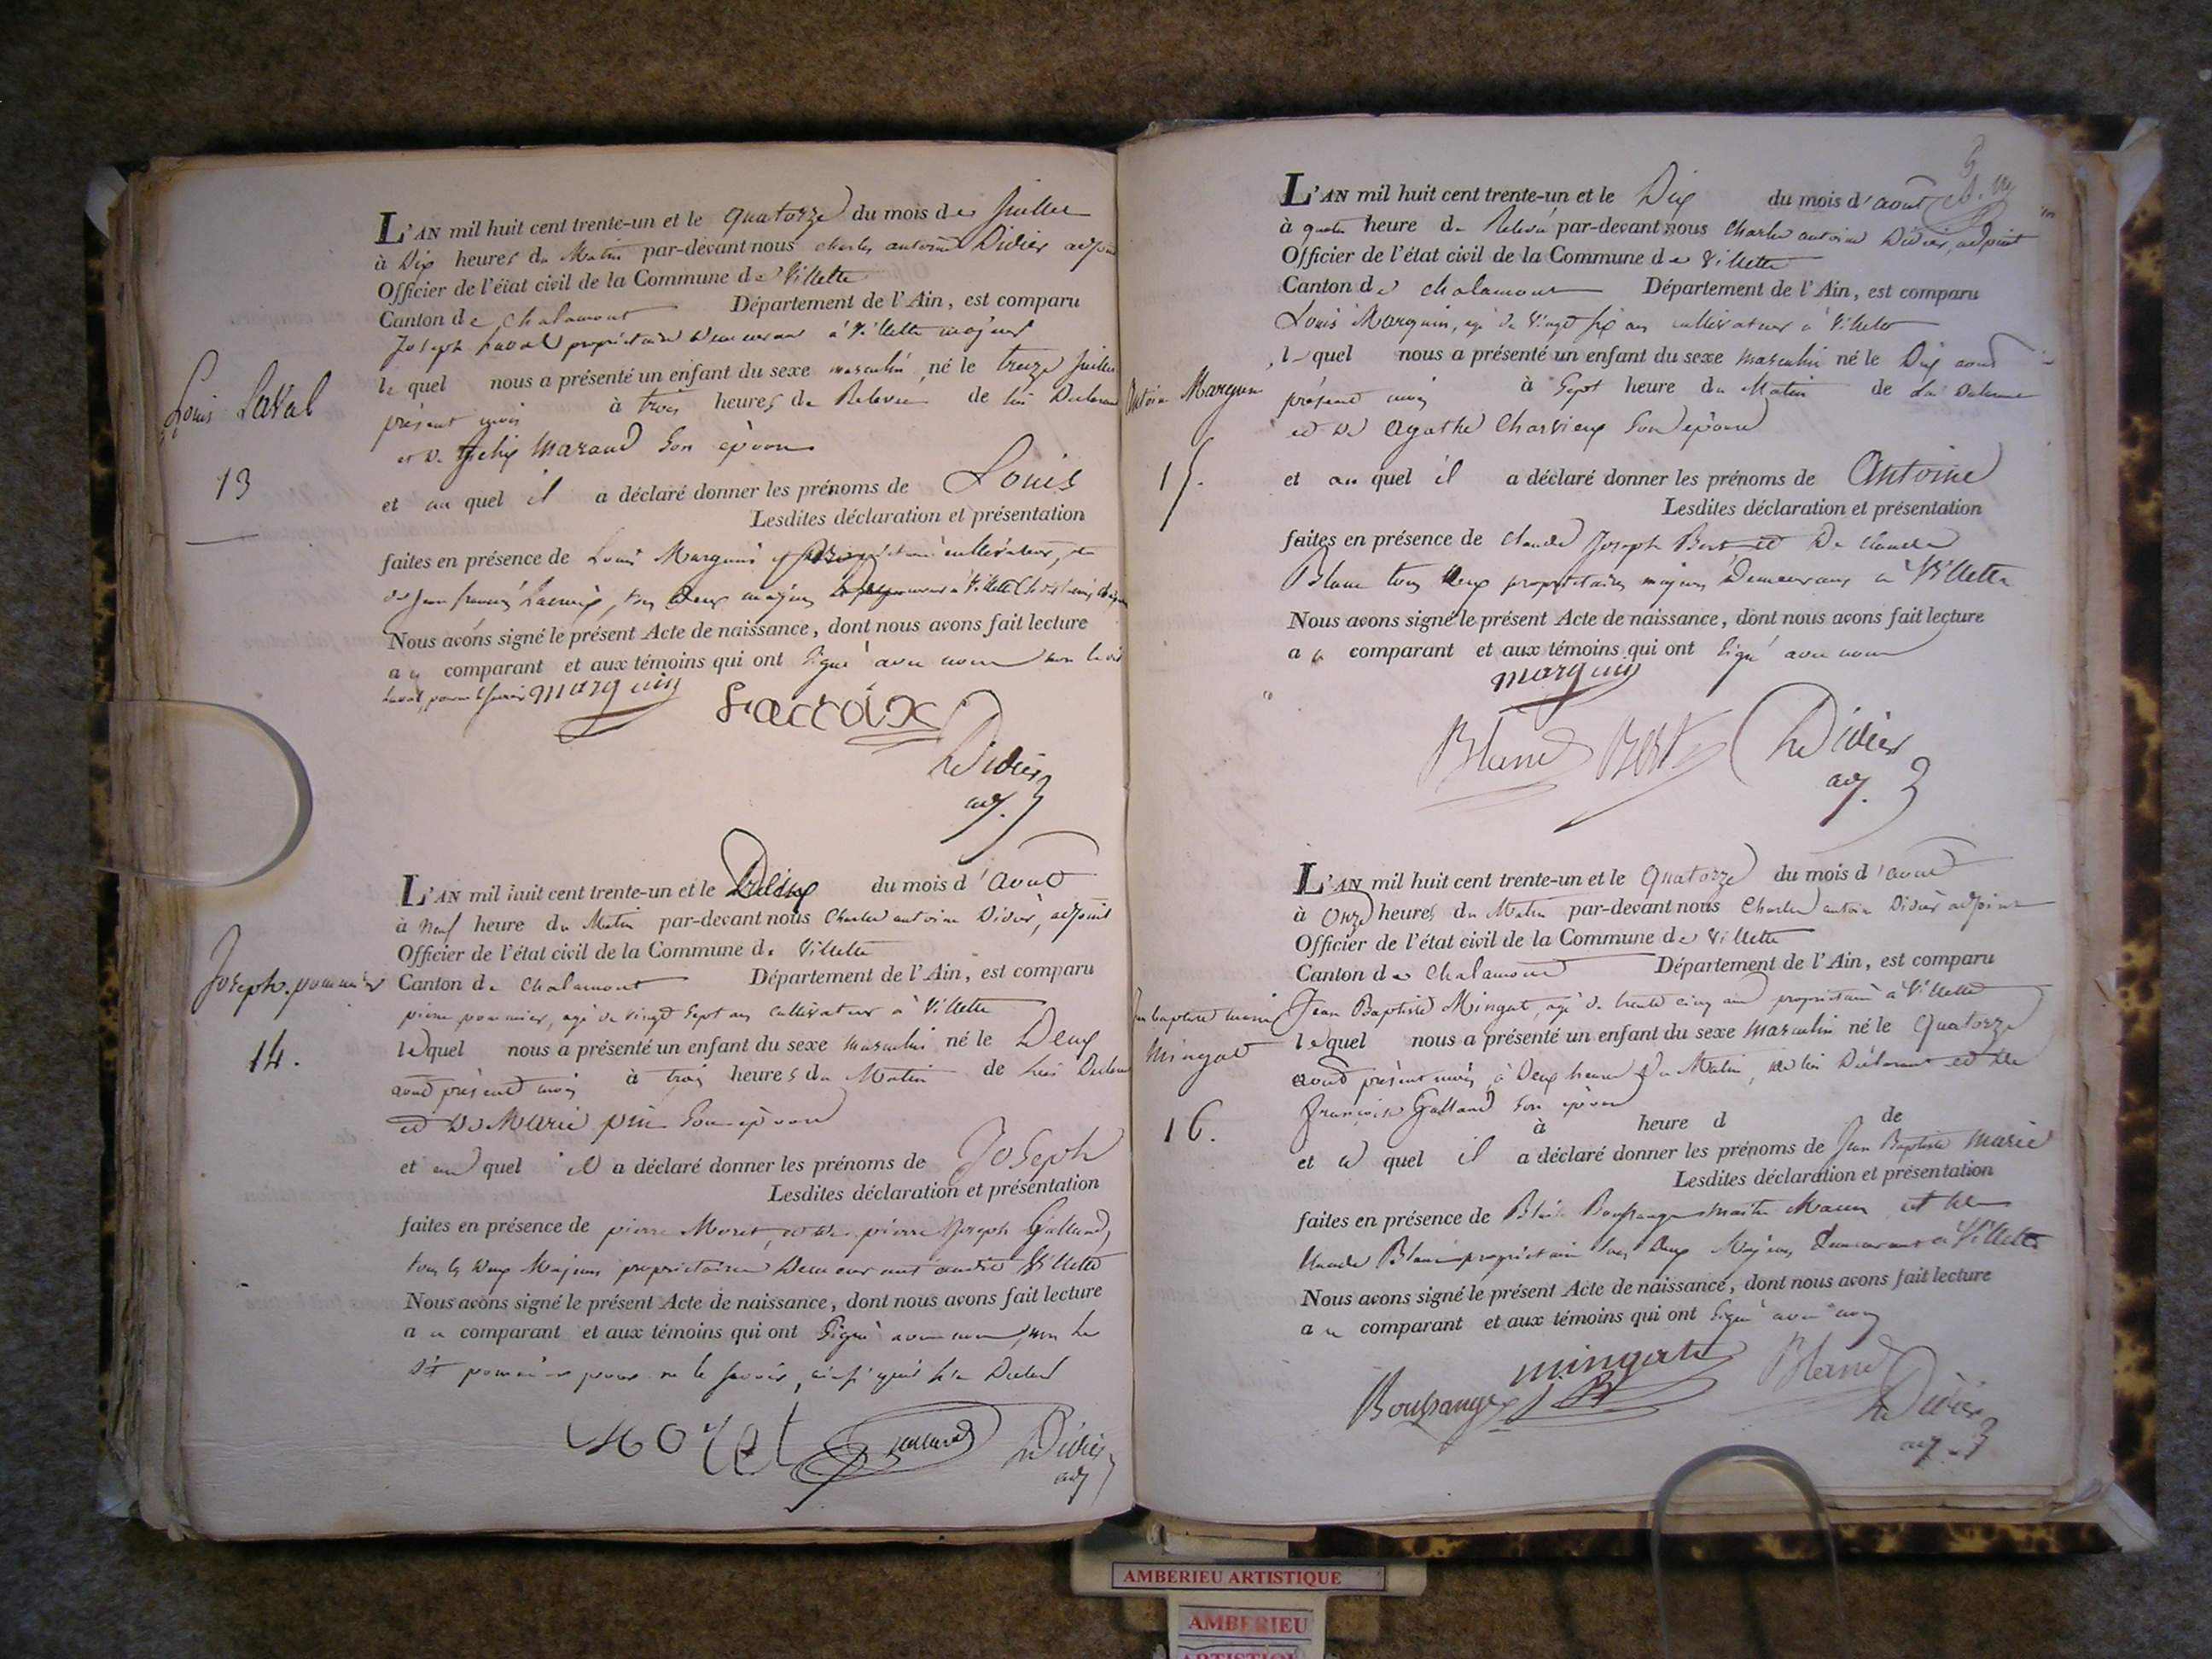 L'AN mil huit cent trente-un et le quatorze du mois de Juillet
à Dix heures du Matin par-devant nous charles antoine Didier adjoint
Officier de l'état civil de la Commune de Villette
Canton de Chalamont Département de l'Ain, est comparu
Joseph Laval propriétaire demeurant à Villette majeur
lequel nous a présenté un enfant du sexe masculin né le treize Juillet
présent mois à trois heures de Relevée de lui Déclarant
et de Maraud son épouse
et au quel il a déclaré donner les prénoms de Louis
Lesdites déclaration et présentation
faites en présence de Louis Marguin cultivateur,
tous Deux majeurs à Villette
Nous avons signé le présent Acte de naissance, dont nous avons fait lecture
au comparant et aux témoins qui ont signé avec nous
marguin
Lacroix
Didier
adj.
Louis Laval
13
L'AN mil huit cent trente-un et le du mois d'aout
à Neuf heure du Matin par-devant nous Charles antoine Didier, adjoint
Officier de l'état civil de la Commune de Villette
Canton de Chalamont Département de l'Ain, est comparu
pierre pommier, agé de vingt Sept ans cultivateur à Villette
lequel nous a présenté un enfant du sexe masculin né le Deux
aout présent mois à trois heures du Matin de lui Déclarant
et de Marie son épouse
et au quel il a déclaré donner les prénoms de Joseph
Lesdites déclaration et présentation
faites en présence de pierre Moret, et de pierre Joseph Galland,
tous les deux Majeurs propriétaires Demeurant audit Villette
Nous avons signé le présent Acte de naissance, dont nous avons fait lecture
au comparant et aux témoins qui ont signé avec nous, non le
dit pommier pour ne le savoir, ainsi qu'il l'a Déclaré
Moret Galland Didier
adj
Joseph pommier
14.
L'AN mil huit cent trente-un et le Dix du mois d'aout
à quatre heure de Relevée par-devant nous Charles antoine Didier, adjoint
Officier de l'état civil de la Commune de Villette
Canton de chalamont Département de l'Ain, est comparu
Louis Marguin, agé de vingt six ans cultivateur à Villette
lequel nous a présenté un enfant du sexe masculin né le Dix aout
présent mois à Sept heure du Matin de lui Déclarant
et de Agathe Charvieux Son épouse
et au quel il a déclaré donner les prénoms de Antoine
Lesdites déclaration et présentation
faites en présence de Claude Joseph Bert et De Claude
Blanc tous Deux propriétaires majeurs Demeurans à Villette
Nous avons signé le présent Acte de naissance, dont nous avons fait lecture
au comparant et aux témoins qui ont signé avec nous
marguin
Blanc Bert Didier
adj.
Antoine Marguin
15.
L'AN mil huit cent trente-un et le Quatorze du mois d'aout
à Onze heures du Matin par-devant nous Charles antoine Didier adjoint
Officier de l'état civil de la Commune de Villette
Canton de Chalamont Département de l'Ain, est comparu
Jean Baptiste Mingat, agé de trente cinq ans propriétaire à Villette
lequel nous a présenté un enfant du sexe masculin né le Quatorze
aout présent mois, à Deux heures du Matin, de lui Déclarant et de
françoise Galland son épouse
à heure d de
et au quel il a déclaré donner les prénoms de Jean Baptiste Marie
Lesdites déclaration et présentation
faites en présence de maitre Macon et de
Claude Blanc propriétaire tous Deux Majeurs Demeurant à Villette
Nous avons signé le présent Acte de naissance, dont nous avons fait lecture
au comparant et aux témoins qui ont signé avec nous
mingat Blanc
Didier
adj.
Jean baptiste marie
Mingat
16.
AMBERIEU ARTISTIQUE
AMBERIEU
ARTISTIQUE